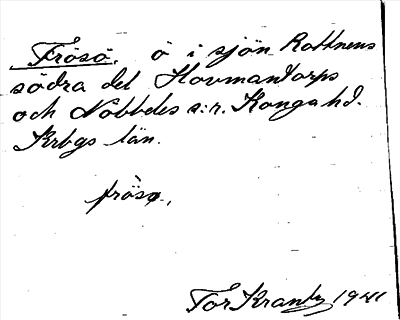 Frösö, ö i sjön Rottnens
södra del Hovmantorps
och Nöbbeles s:r. Konga hd.
Krbgs län.
fröso,
Tor Krantz 1941